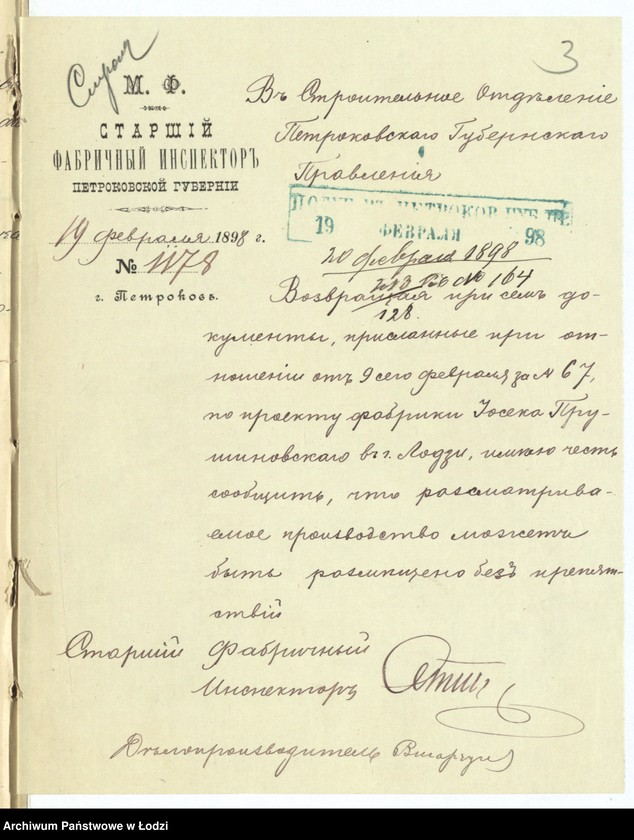 3
М. Ф.
СТАРШІЙ
ФАБРИЧНЫЙ ИНСПЕКТОРЪ
ПЕТРОКОВСКОЙ ГУБЕРНІИ
19 февраля 1898 г.
№ 1178
г. Петроковъ.
Въ Строительное Отдѣленіе
Петроковскаго Губернскаго
Правленія
19 ФЕВРАЛЯ 98
20 февраля 1898
№ 164
128.
Возвращая при семъ до-
кументы, присланные при от-
ношеніи отъ 9 сего февраля за № 67,
по проекту фабрики Іосека Пру-
шиновскаго въ г. Лодзи, имѣю честь
сообщить, что разсматрива-
емое производство можетъ
быть размѣщено безъ препят-
ствій
Старшій Фабричный
Инспекторъ
Дѣлопроизводитель
Archiwum Państwowe w Łodzi